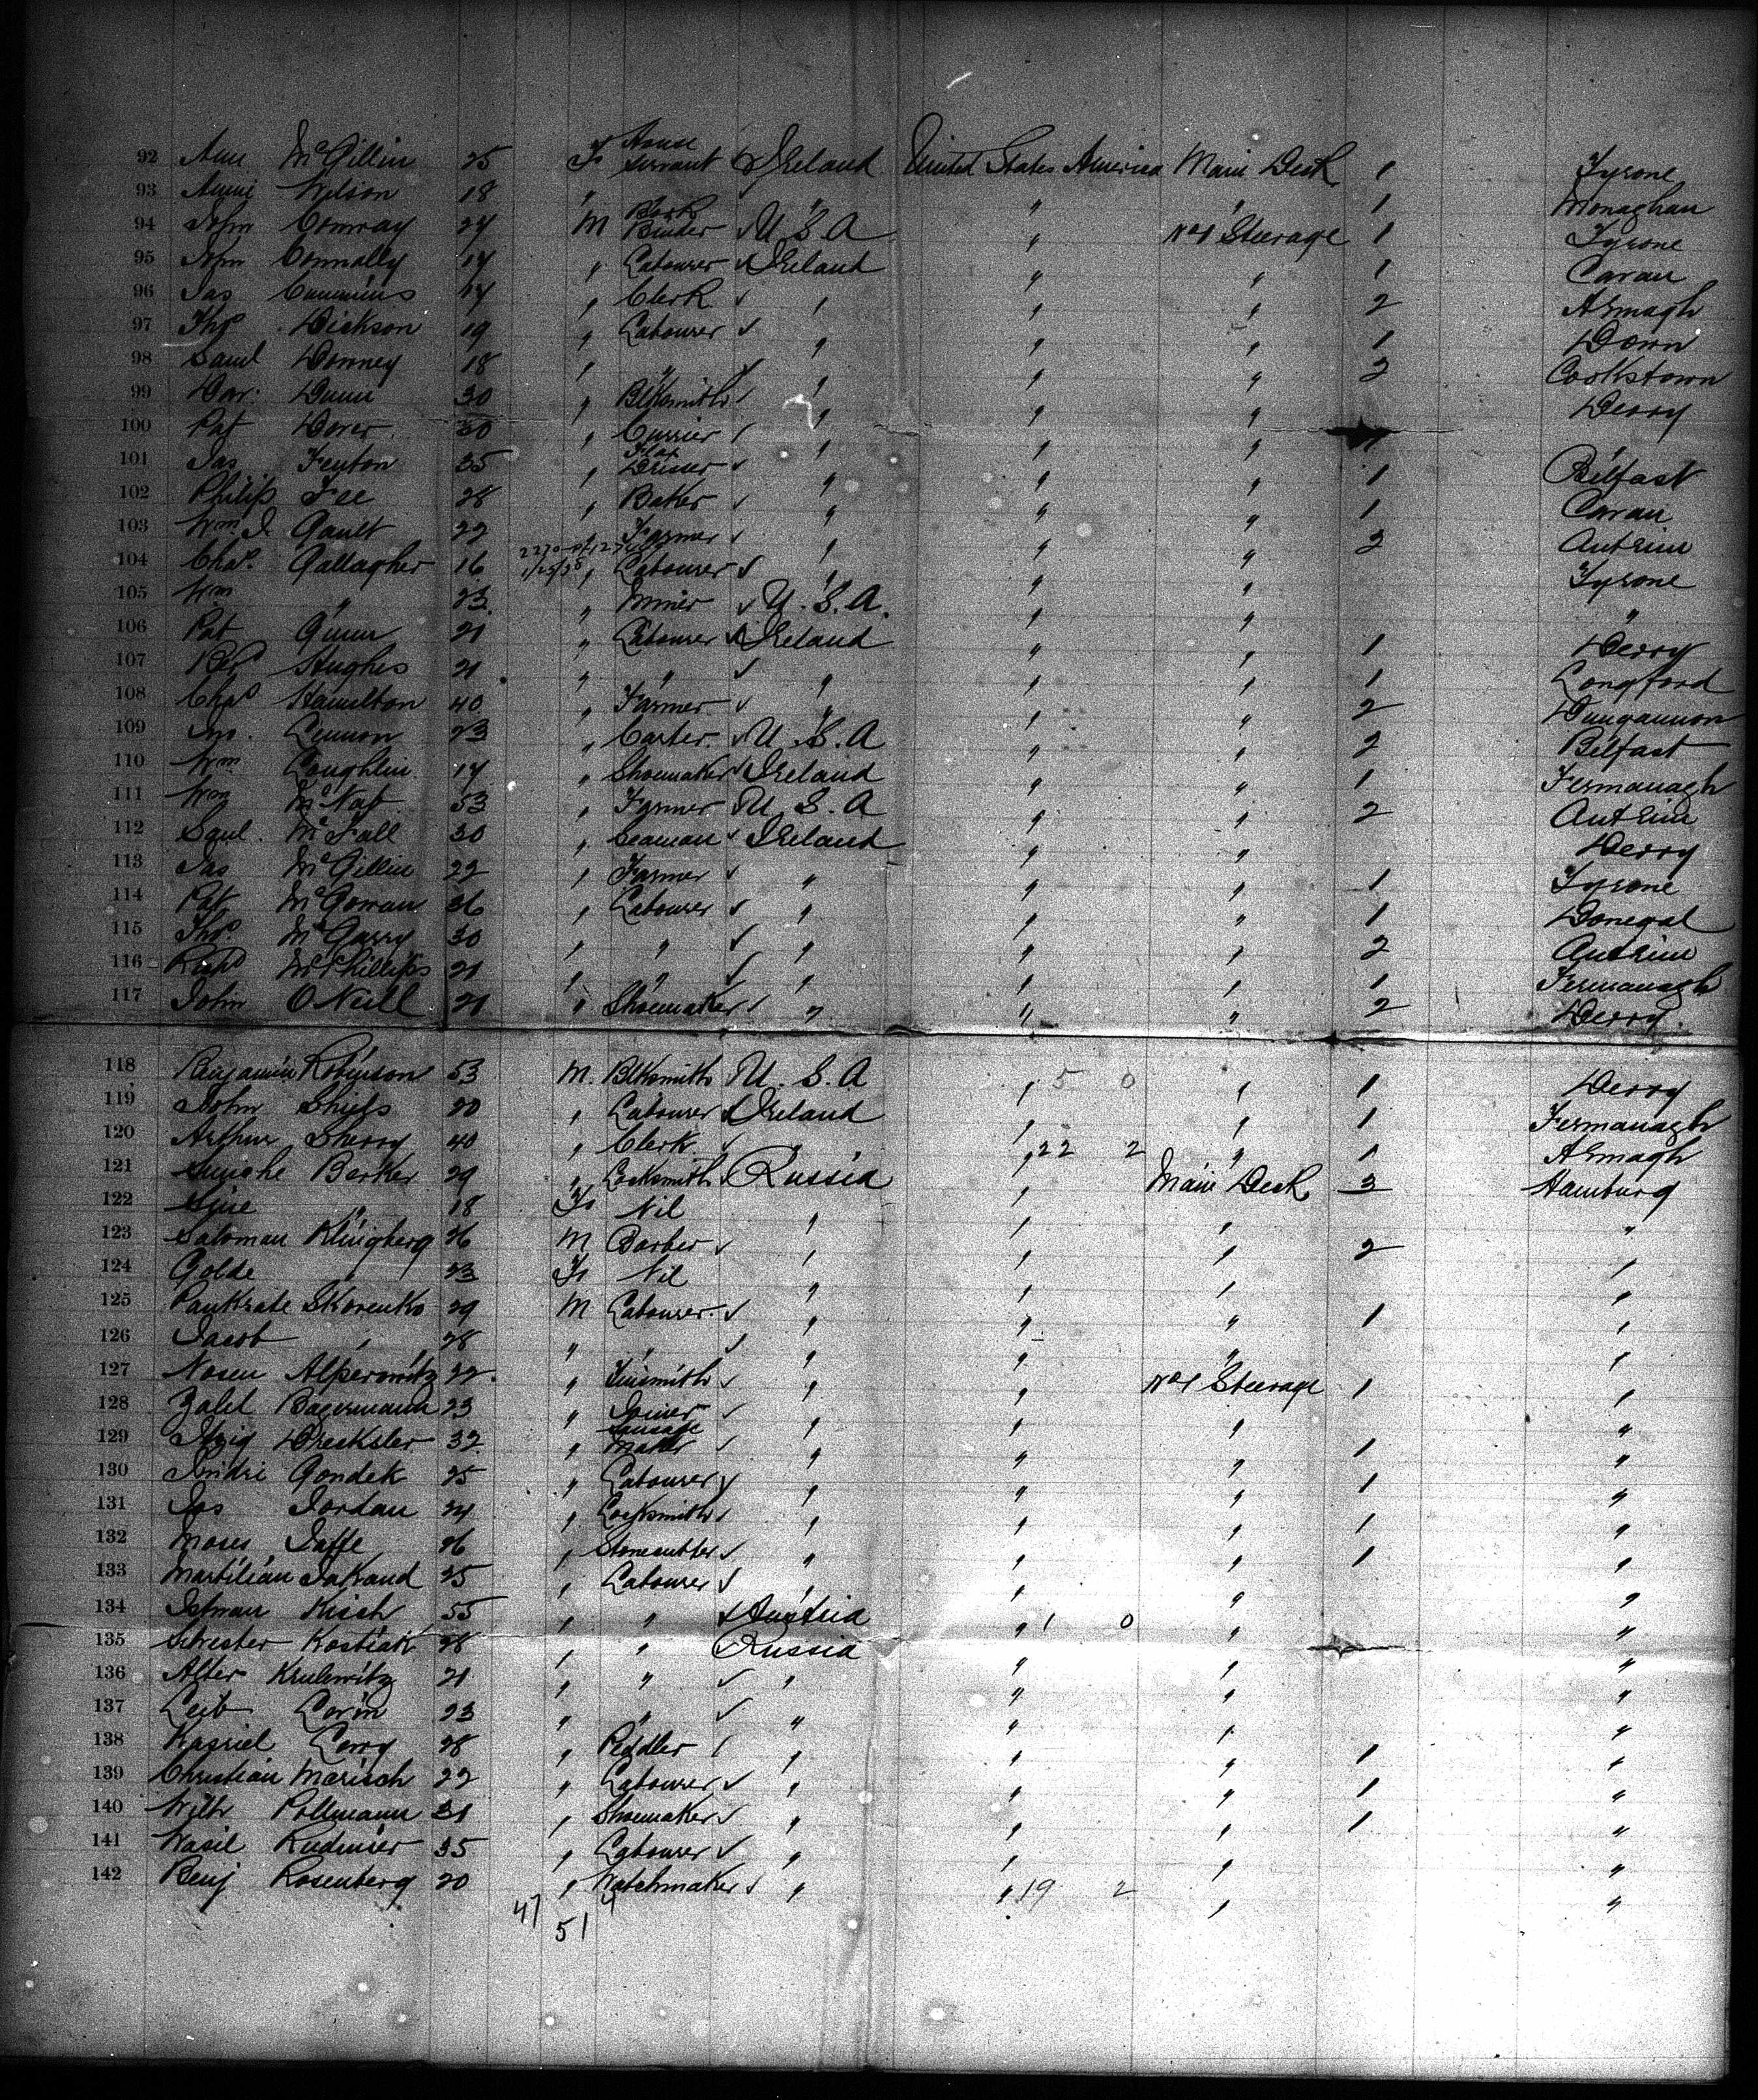 92 Ann McGillin 25 F House Servant Ireland United States America Main Deck 1 Tyrone
93 Annie Wilson 18 " " " 1 Monaghan
94 John Conway 24 M Book Binder U S A " No 1 Steerage 1 Tyrone
95 John Connolly 17 " Labourer Ireland " " 1 Cavan
96 Jas Cummins 17 " Clerk " " " 2 Armagh
97 Thos Dickson 19 " Labourer " " " 1 Down
98 Saml Downey 18 " " " " " 2 Cookstown
99 Dunn 30 " Blksmith " " " Derry
100 Pat Dover 30 " Currier " " "
101 Jas Fenton 35 " Flax Dresser " " " 1 Belfast
102 Philip Fee 28 " Baker " " " 1 Cavan
103 Wm J Gault 22 " Farmer " " " 2 Antrim
104 Chas. Gallagher 16 " Labourer " " " Tyrone
105 Wm " 23 " Miner U. S. A. " " "
106 Pat Gunn 21 " Labourer Ireland " " 1 Derry
107 Hughes 21 " " " " " 1 Longford
108 Chas Hamilton 40 " Farmer " " " 2 Dungannon
109 Jno. Lennon 23 " Carter. U. S. A " " 2 Belfast
110 Wm Loughlin 17 " Shoemaker Ireland " " 1 Fermanagh
111 Wm McNab 53 " Farmer U. S. A " " 2 Antrim
112 Saml. McFall 30 " Seaman Ireland " " Derry
113 Jas McGillin 22 " Farmer " " " 1 Tyrone
114 Pat McGowan 36 " Labourer " " " 1 Donegal
115 Thos. McGarry 30 " " " " " 2 Antrim
116 Richd McPhillips 21 " " " " " 1 Fermanagh
117 John O'Neill 21 " Shoemaker " " " 2 Derry
118 Benjamin Robinson 53 M. Blksmith U. S. A " 5 0 " 1 Derry
119 John Shiels 20 " Labourer Ireland " " 1 Fermanagh
120 Arthur Sherry 40 " Clerk " " 22 2 " 1 Armagh
121 Berker 29 " Locksmith Russia " Main Deck 3 Hamburg
122 " 18 F Nil " " " "
123 Saloman Klingberg 26 M Barber " " " 2 "
124 Golde " 23 F Nil " " " "
125 Pankrate Skorenko 29 M Labourer " " " 1 "
126 Jacob " 28 " " " " " "
127 Nosen Alperowitz 22 " Tinsmith " " No 1 Steerage 1 "
128 Zalel Bagermann 23 " Joiner " " " "
129 Itzig Drecksler 32 " Sausage Maker " " " 1 "
130 Andri Gondek 25 " Labourer " " " 1 "
131 Jos Jordan 24 " Locksmith " " " 1 "
132 Moses Jaffe 26 " Stonecutter " " " 1 "
133 Jakand 25 " Labourer " " " "
134 Kisch 55 " " Austria " 1 0 " "
135 Silvester Kostiak 28 " " Russia " " "
136 Alter Krulewitz 21 " " " " " "
137 Leib Lorin 23 " " " " " "
138 Kasriel Lerry 28 " Peddler " " " 1 "
139 Christian Marisch 22 " Labourer " " " 1 "
140 Wilh Pollmann 31 " Shoemaker " " " 1 "
141 Wasil Kudinier 35 " Labourer " " " "
142 Benj Rosenberg 20 " Watchmaker " " 19 2 " "
47 4
51